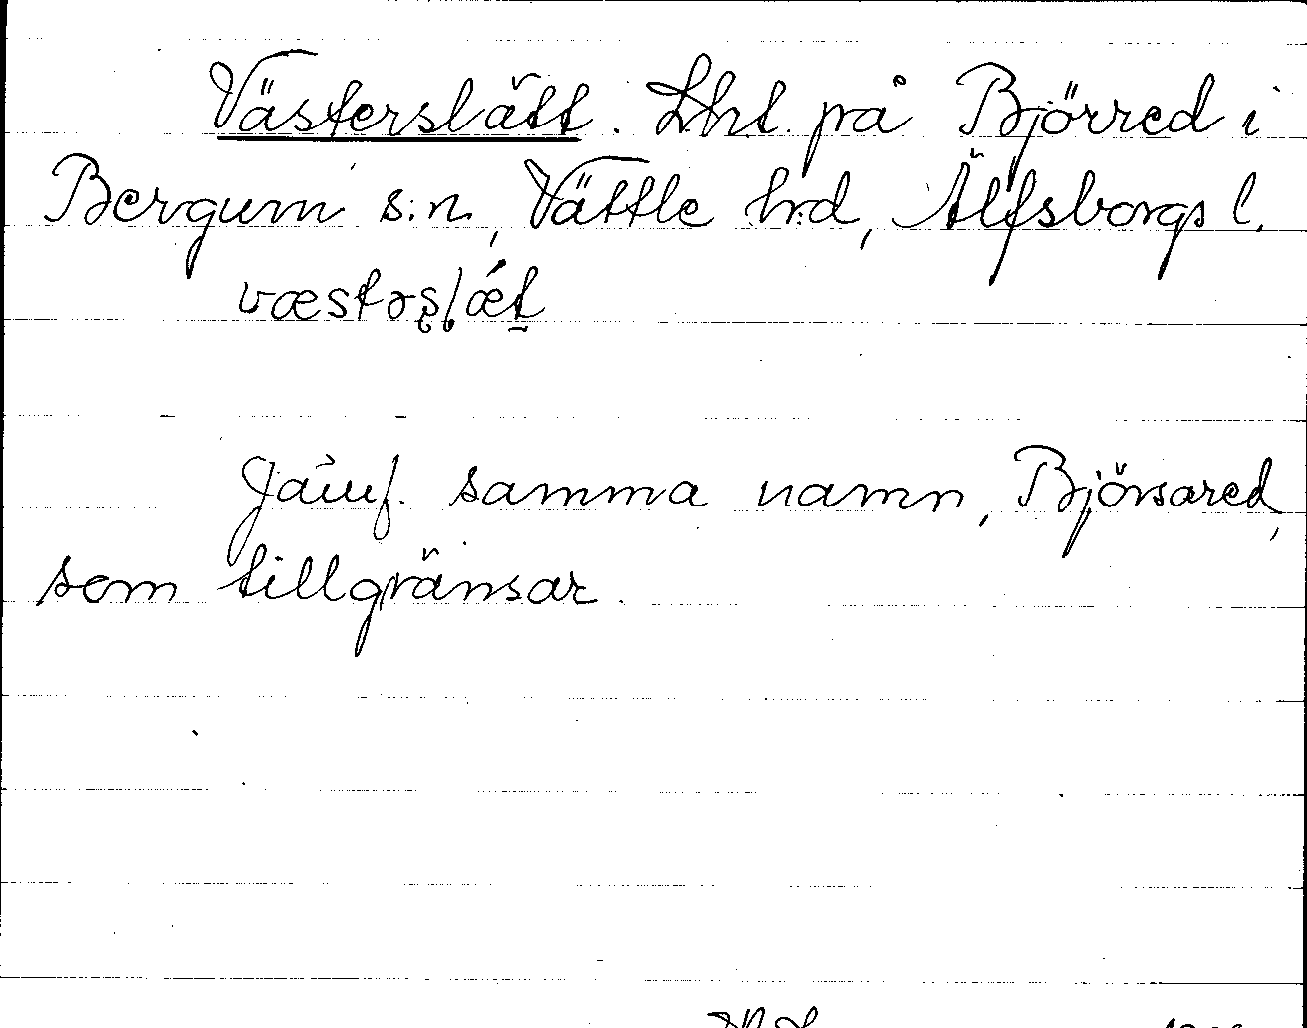 Västerslätt. Lht. på Björred i
Bergum s:n, Vättle hrd, Älfsborgs l.
væstəslǽt
Jämf. samma namn, Björsared,
som tillgränsar.